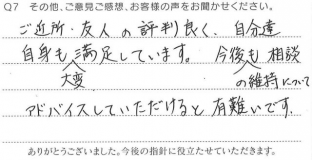 Q7 その他、ご意見ご感想、お客様の声をお聞かせください。
ご近所・友人の評判良く、自分達
自身も大変満足しています。今後も相談
の維持について
アドバイスしていただけると有難いです.
ありがとうございました。今後の指針に役立たせていただきます。